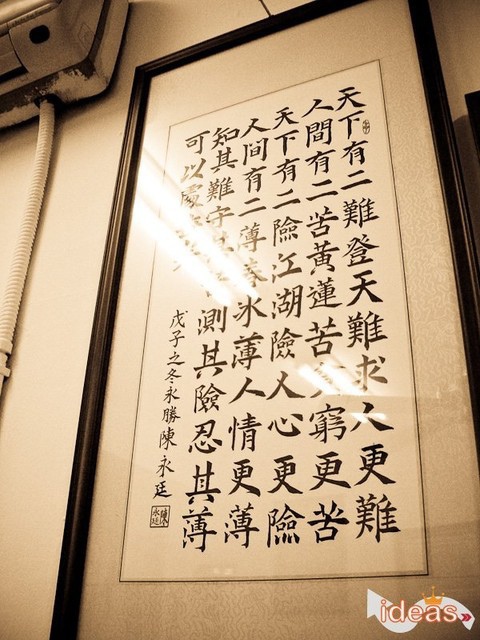 天下有二難登天難求人更難
人間有二苦黃蓮苦貧窮更苦
天下有二險江湖險人心更險
人間有二薄春氷薄人情更薄
知其難守其測其險忍其薄
可以處
戊子之冬永勝陳永廷
陳永廷
ideas